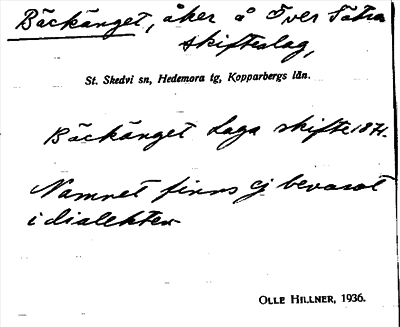 Bäckänget, åker å Över Sätra
skifteslag,
St. Skedvi sn, Hedemora tg, Kopparbergs län.
Bäckänget Laga skifte 1871.
Namnet finns ej bevarat
i dialekten
OLLE HILLNER, 1936.